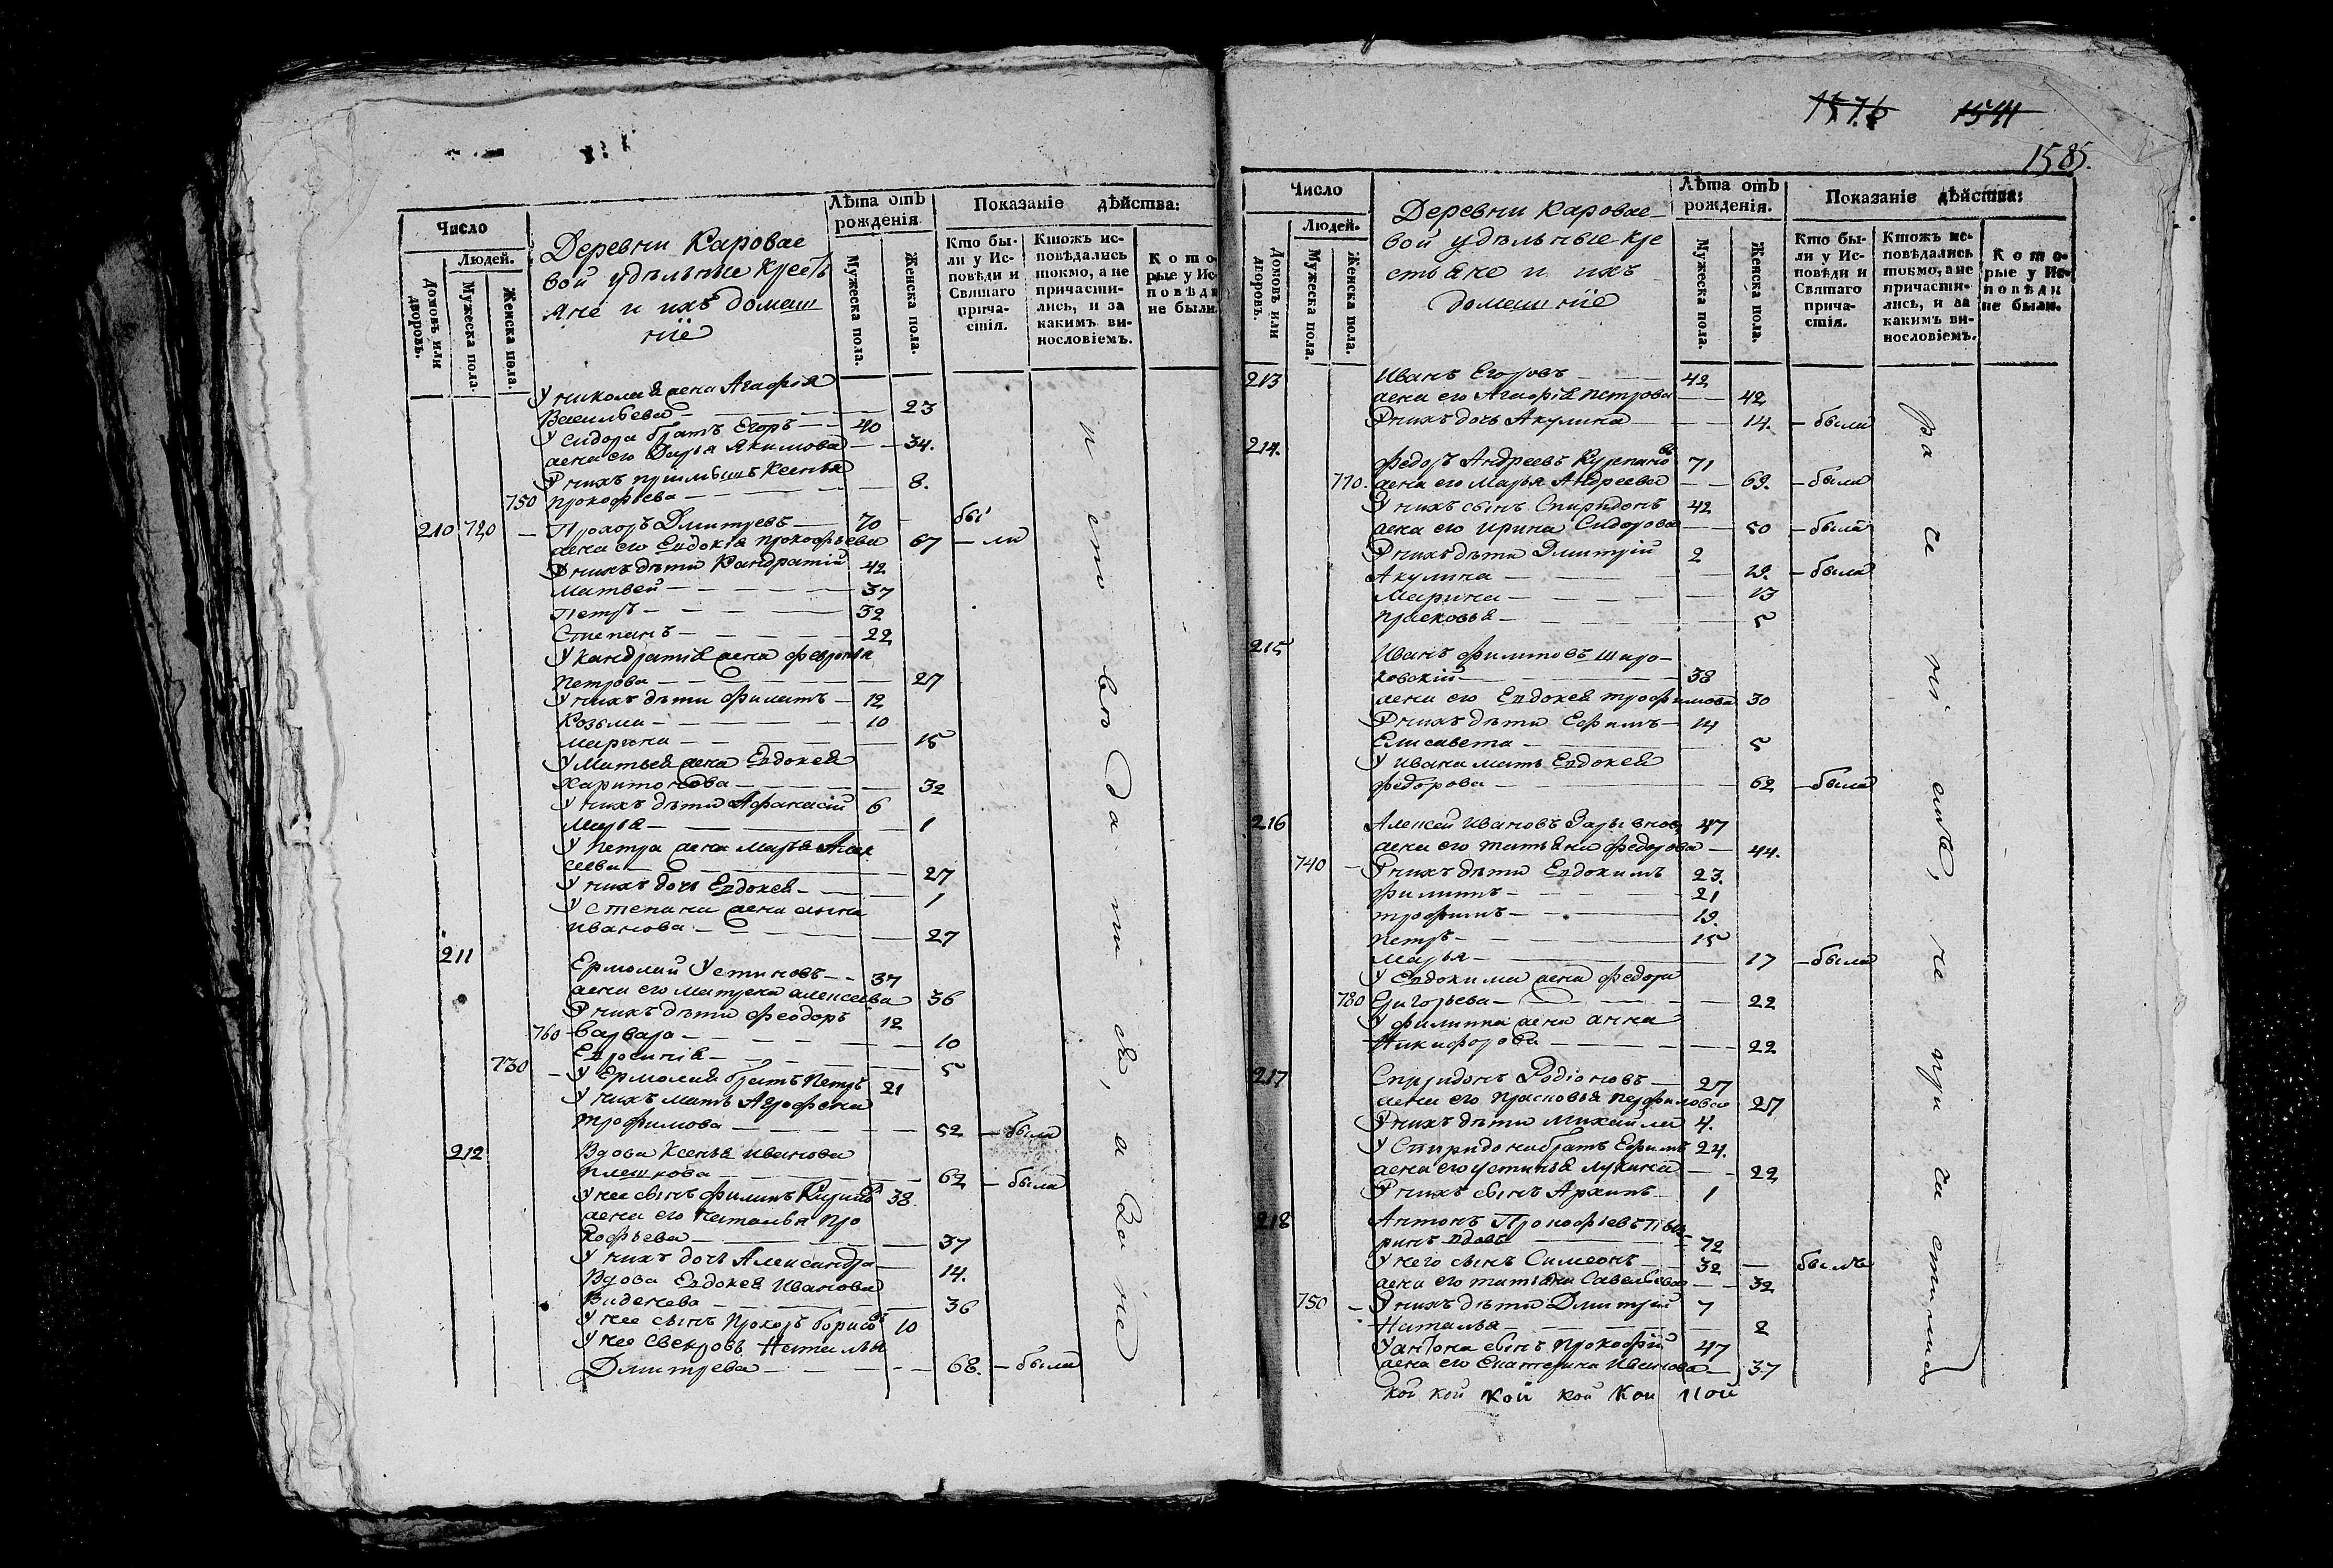 Число
Людей.
Домовъ или дворовъ.
Мужеска пола.
Женска пола.
Деревни Каровае
вой удѣльные крестъ
яне и ихъ домаш
ніе
Лѣта отъ рожденія
Мужеска пола.
Женска пола.
Показаніе дѣйства:
Кто бы-
ли у Ис-
повѣди и
Святаго
прича-
стія.
Ктожъ ис-
повѣдались
токмо, а не
причасти-
лись, и за
какимъ ви-
нословіемъ.
Кото-
рые у Ис-
повѣди
не были.
У николая жена Агафія
Васильева 23
У сидора братъ Егоръ 40
жена его Дарья Якимова 34.
У нихъ пріемышъ Ксенья
750 прокофьева 8.
210 720 Прохоръ Дмитревъ 70 бы
жена его Евдокія прокофьева 67 ли
У нихъ дѣти Кандратій 42
Матвей 37
Петръ 32
Степанъ 22
У кандратія жена феврония
петрова 27
У нихъ дѣти филатъ 12
Козьма 10
марина 15
У Матвея жена Евдокея
харитонова 32
У нихъ дѣти Афанасій 6
Марья 1
У петра жена марья Алек
сеева 27
У нихъ дочь Евдокея 1
У степана жена анна
иванова 27
211
Ермолай Устиновъ 37
жена его матрена алексеева 36
У нихъ дѣти феодоръ 12
760 варвара 10
Ефросинія 5
730 У Ермолая братъ Петръ 21
У нихъ мать Агрофена
трофимова 52 была
212 Вдова Ксенья иванова
плешкова 62 была
У нее сынъ филипъ 38.
жена его наталья про
кофьева 37
У нихъ дочь Александра 14.
Вдова Евдокея Иванова
36
У нее сынъ прохоръ борисовъ 10
У нее свекровь Наталья
Дмитрева 68. была
исповѣдался, а за не
1576 1541
1585.
Число
Людей.
Домовъ или дворовъ.
Мужеска пола.
Женска пола.
Деревни Каровае
вой удѣльные кре
стьяне и ихъ
домашніе
Лѣта отъ рожденія.
Мужеска пола.
Женска пола.
Показаніе дѣйства:
Кто бы-
ли у Ис-
повѣди и
Святаго
прича-
стія.
Ктожъ ис-
повѣдались
токмо, а не
причасти-
лись, и за
какимъ ви-
нословіемъ.
Кото-
рые у Ис-
повѣди
не были.
213 Иванъ Егоровъ 42
жена его Агафія петрова 42
У нихъ дочь Акулина 14. была
214. федоръ Андреевъ 71
770. жена его марья Андреева 69. была
У нихъ сынъ Спиридонъ 42
жена его ирина Сидорова 50 была
У нихъ дѣти Дмитрій 2
Акулина 19. была
Марина 13
прасковья 5
215 Иванъ филиповъ широ-
ковскій 38
жена его Евдокея трофимова 30
У нихъ дѣти Ефимъ 14
Елисавета 5
У ивана мать Евдокея
федорова 62 была
216 Алексей ивановъ 47
жена его татьяна федорова 44.
740 У нихъ дѣти Евдокимъ 23.
филипъ 21
трофимъ 19.
петръ 15
марья 17 была
У Евдокима жена федора
780 Григорьева 22
У филиппа жена анна
Никифорова 22
217 Спиридонъ Родіоновъ 27
жена его прасковья перфилова 27
У нихъ дѣти михайла 4.
У Спиридона братъ Ефимъ 24.
жена его устинья лукина 22
У нихъ сынъ Архипъ 1
218 Антонъ Прокофьевъ
ринъ вдовъ 72
У него сынъ Симеонъ 32 былъ
жена его татьяна Савельева 32
750 У нихъ дѣти Дмитрей 7
Наталья 2
У антона сынъ прокофій 47
жена его Екатерина Иванова 37
кой кой кой кой кой
раченіемъ, не причастился